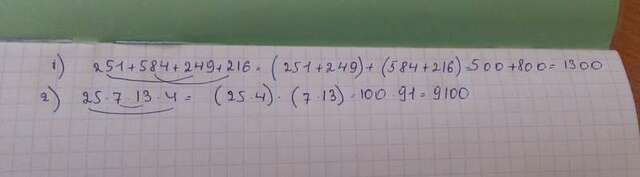 1) 251+584+249+216=(251+249)+(584+216)=500+800=1300
2) 25·7·13·4=(25·4)·(7·13)=100·91=9100